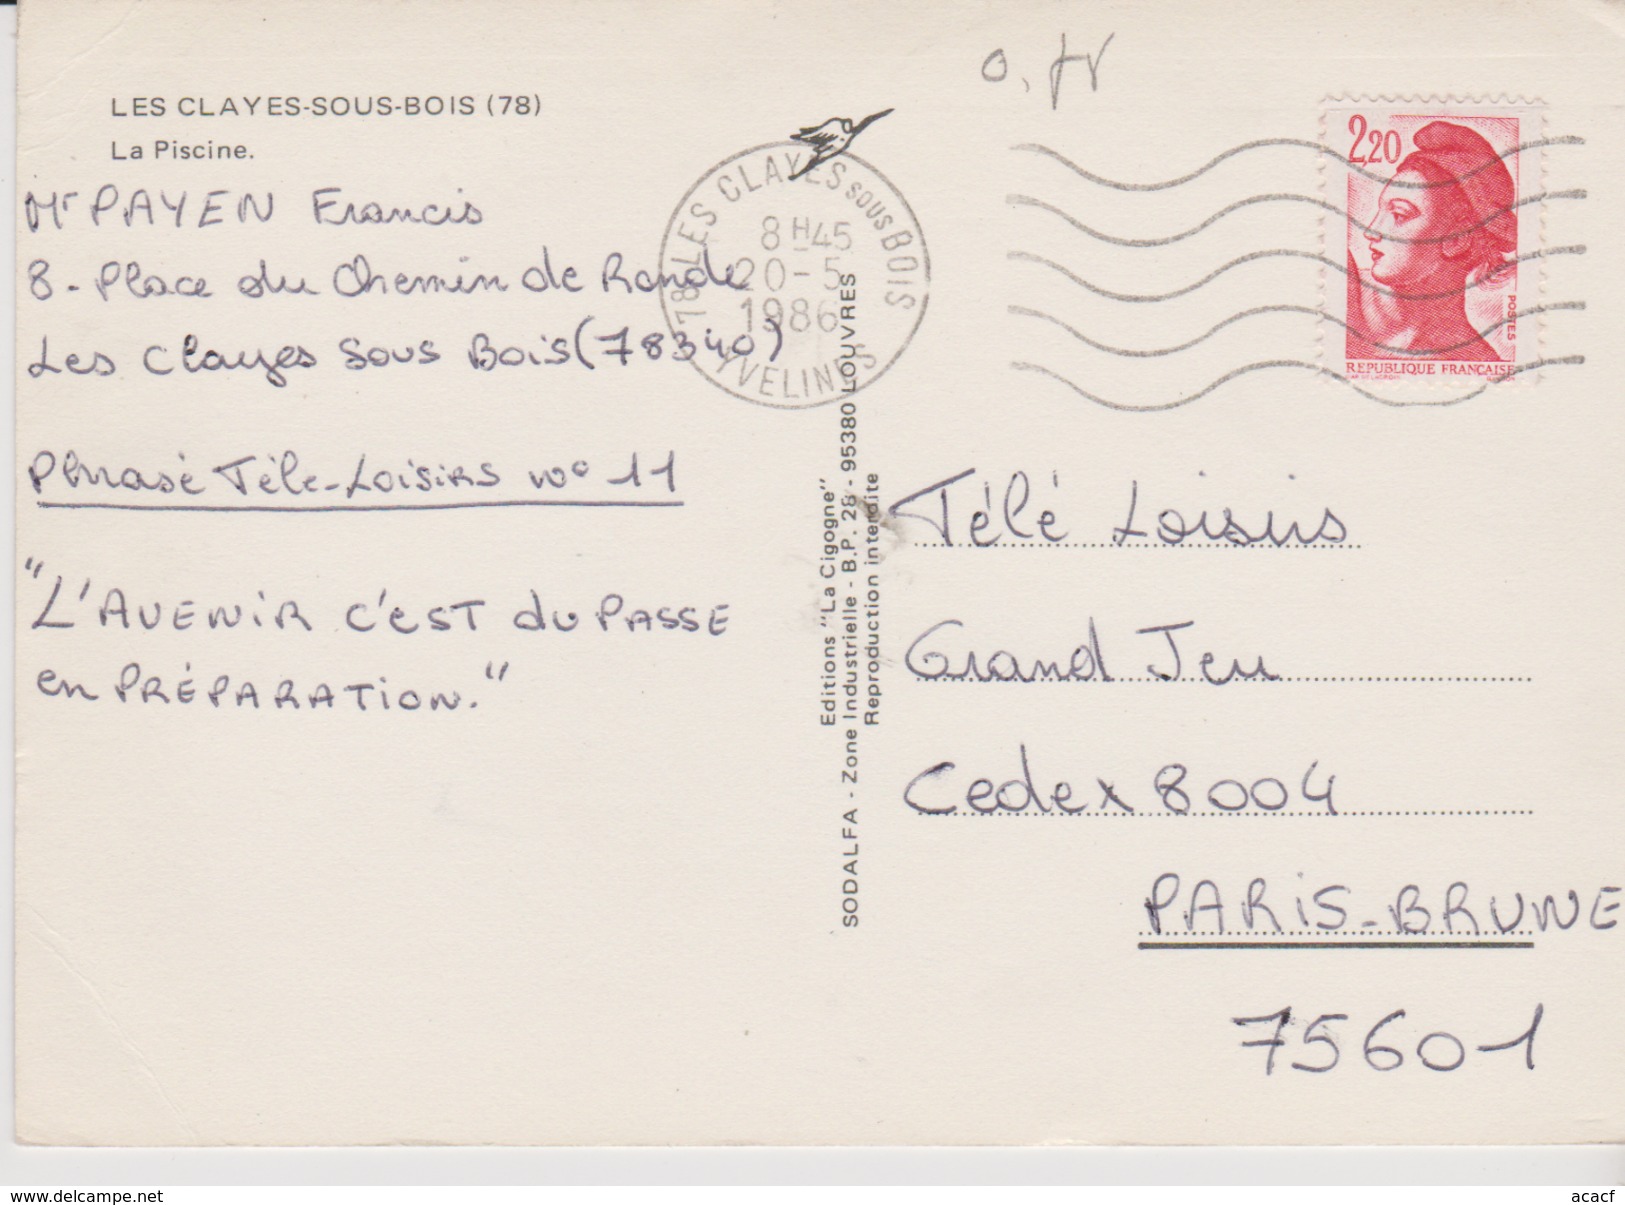 LES CLAYES-SOUS-BOIS (78)
La Piscine.
Mr PAYEN Francis
8 - Place du Chemin de Ronde
Les Clayes sous Bois (78340)
Phrase Télé-Loisirs no 11
"L'AVENIR C'EST du PASSE
en PRÉPARATION."
78 LES CLAYES SOUS BOIS
8H45
20-5
1986
YVELINES
Editions "La Cigogne"
SODALFA - Zone Industrielle - B.P. 28 - 95380 LOUVRES
Reproduction interdite
2,20
POSTES
REPUBLIQUE FRANÇAISE
Télé Loisirs
Grand Jeu
Cedex 8004
PARIS-BRUNE
75601
www.delcampe.net
acacf